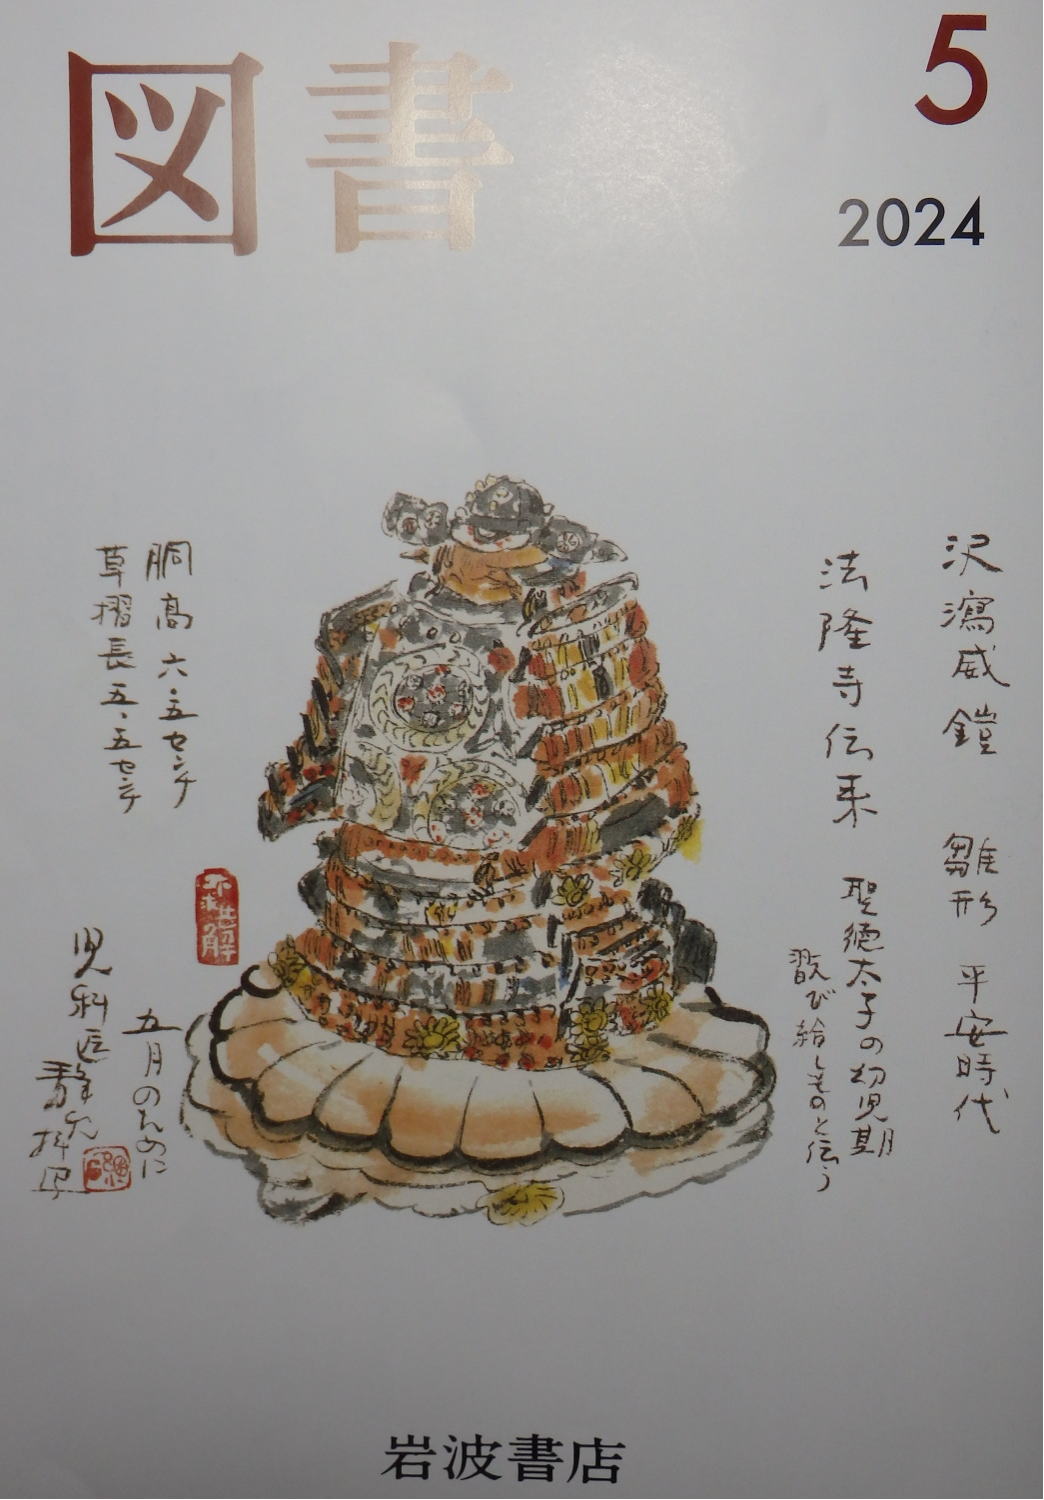 図書
5
2024
沢瀉威鎧　雛形　平安時代
法隆寺伝来　聖徳太子の幼児期
翫び給しものと伝う
胴高六・五センチ
草摺長五・五センチ
不求甚解
五月のために
児科医
岩波書店